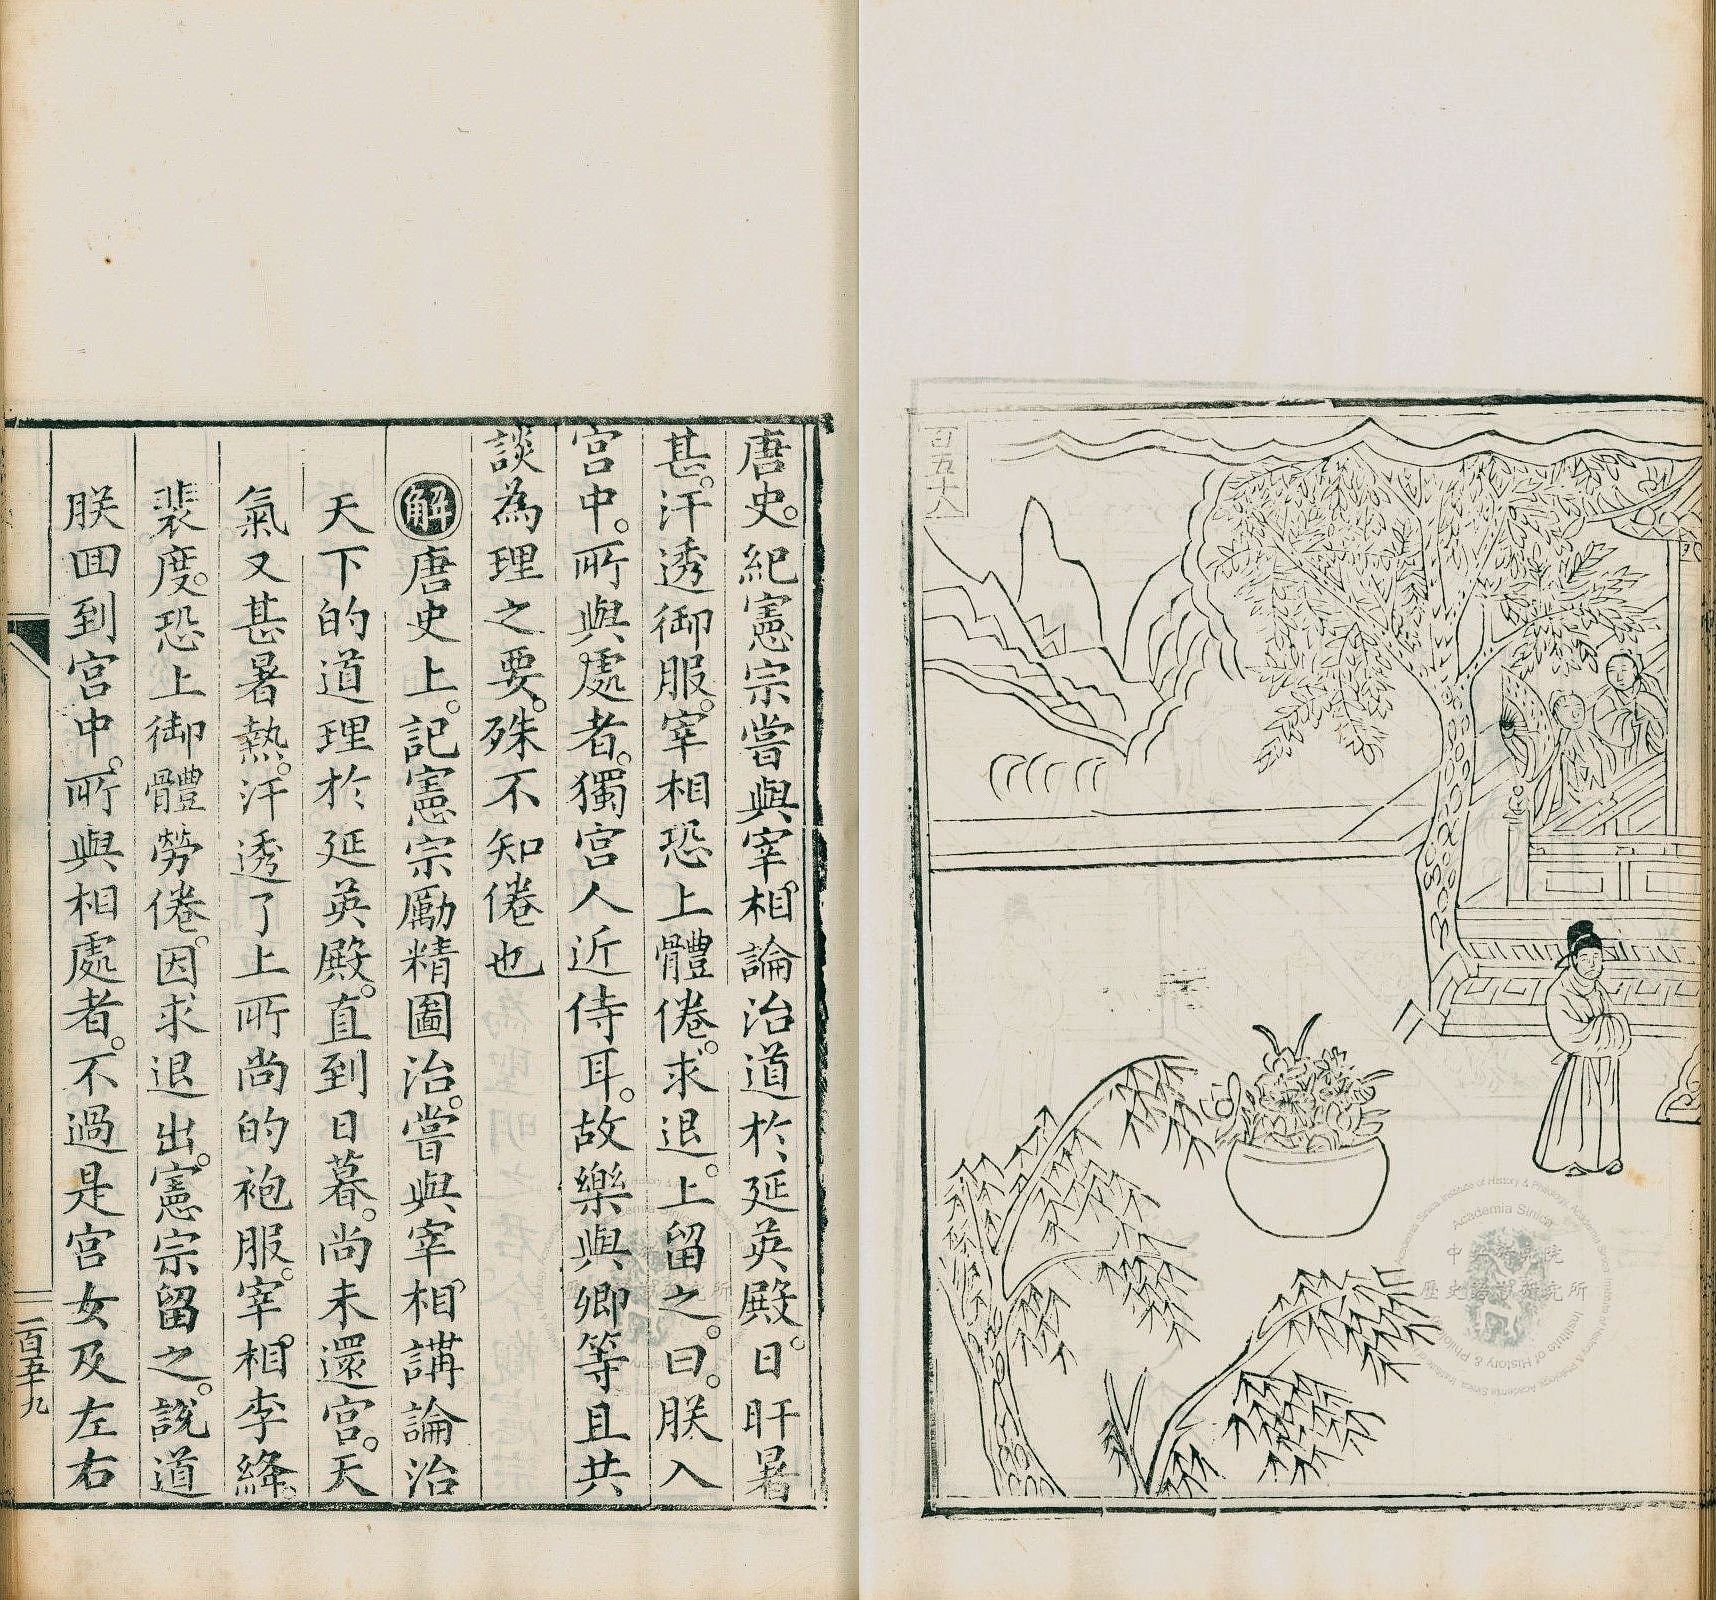 百五十八
唐史紀憲宗嘗與宰相論治道於延英殿日旰暑
甚汗透御服宰相恐上體倦求退上留之曰朕入
宮中所與處者獨宮人近侍耳故樂與卿等且共
談為理之要殊不知倦也
解唐史上記憲宗勵精圖治嘗與宰相講論治
天下的道理於延英殿直到日暮尚未還宮天
氣又甚暑熱汗透了上所尚的袍服宰相李絳
裴度恐上御體勞倦因求退出憲宗留之說道
朕囬到宮中所與相處者不過是宮女及左右
二百五十九
Academia Sinica
中央研究院
歷史語言研究所
Institute of History & Philology